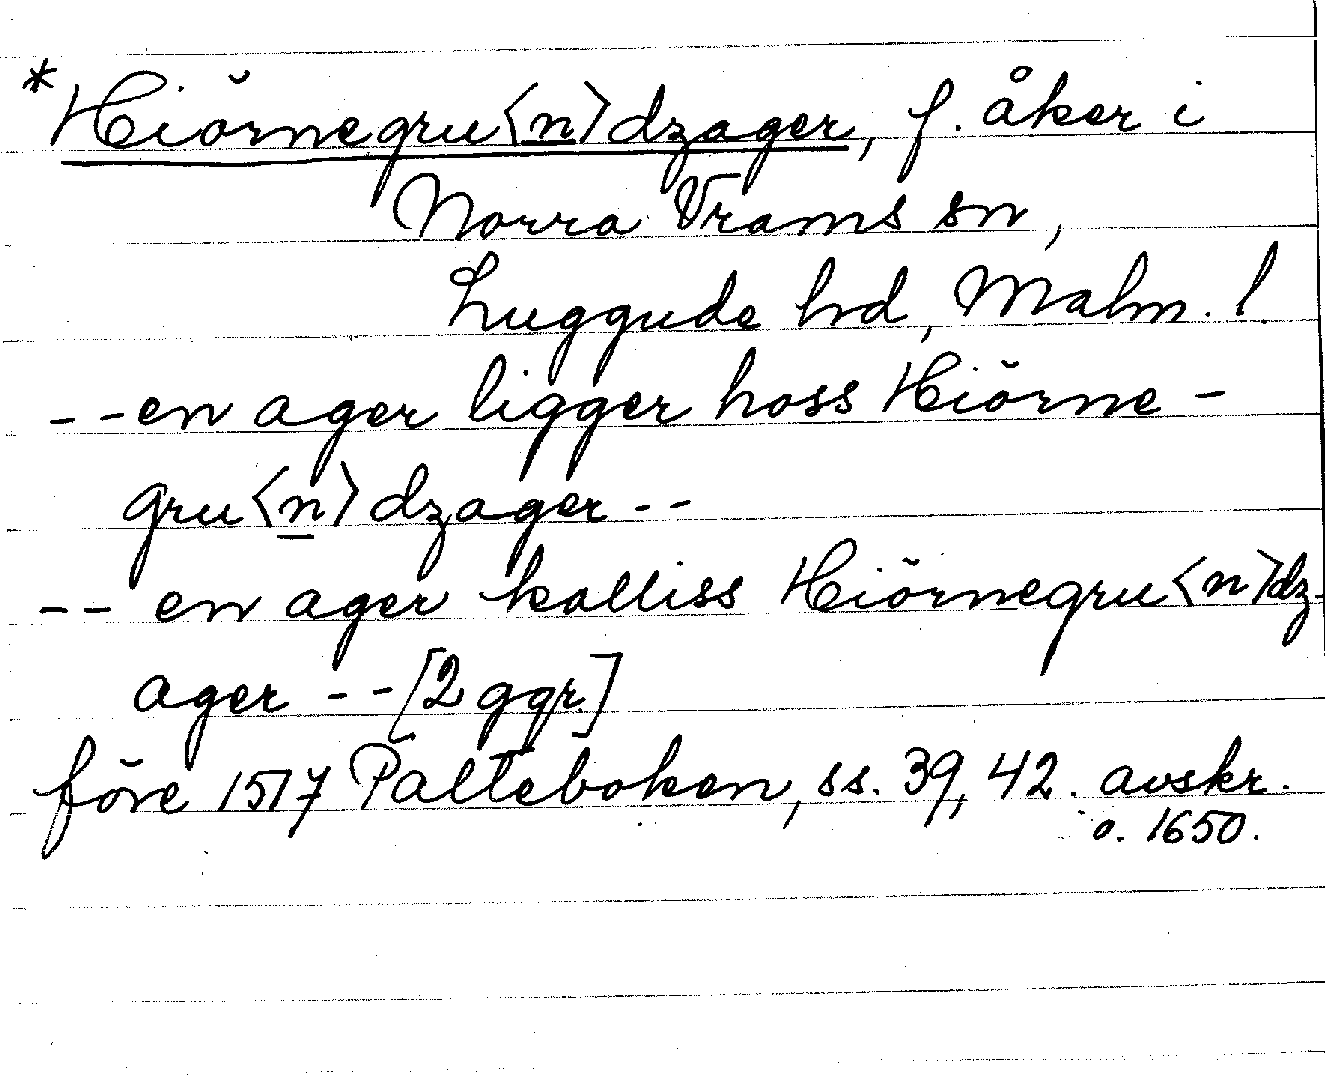 *Hiörnegru<n>dzager, f. åker i
Norra Vrams sn,
Luggude hd, Malm. l.
--en ager ligger hoss Hiörne-
gru<n>dzager--
-- en ager kalliss Hiörnegru<n>dz-
ager --[2 ggr]
före 1517 Palteboken, ss. 39, 42. avskr.
o. 1650.